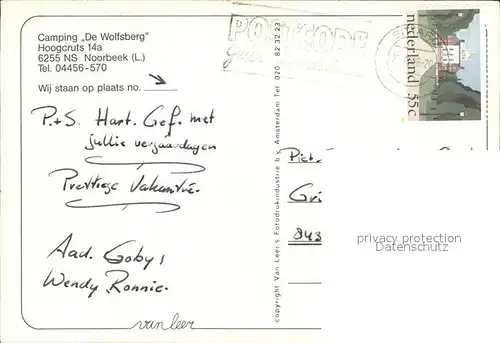 Camping „De Wolfsberg"
Hoogcruts 14a
6255 NS Noorbeek (L.)
Tel. 04456-570
Wij staan op plaats no.
P.+S. Hart. Gef. met
jullie verjaardagen
Prettige Vakantie.
Aad. Goby,
Wendy Ronnie.
van leer
copyright Van Leer's Fotodrukindustrie b.v. Amsterdam Tel 020 82 32 23
POSTCODE
nederland 55c
Piet
Gri
843
privacy protection
Datenschutz